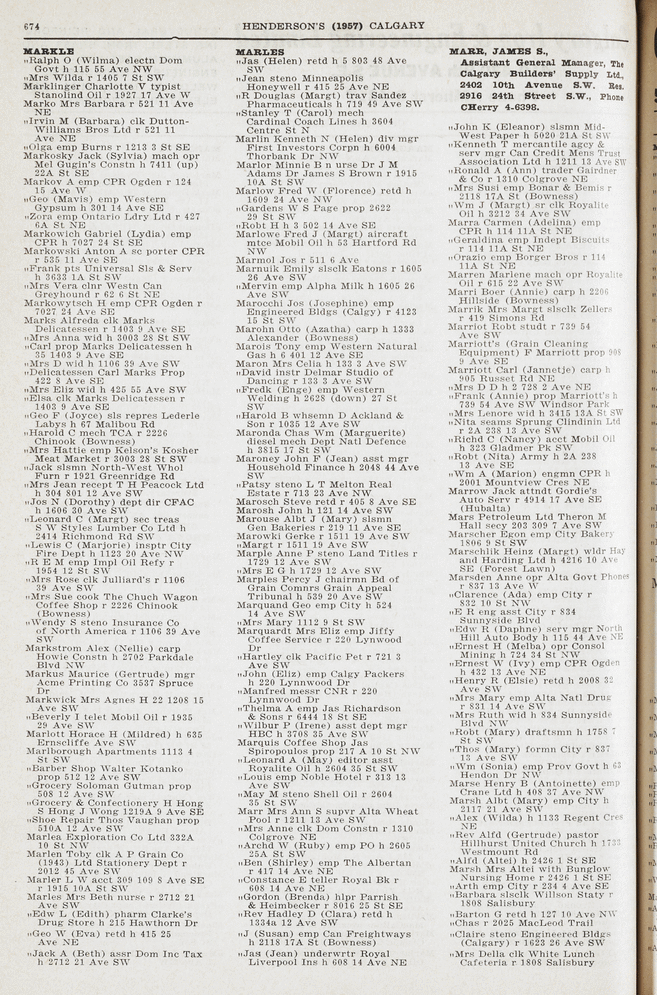 674
HENDERSON'S (1957) CALGARY
MARKLE
„Ralph O (Wilma) electn Dom
Govt h 115 55 Ave NW
„Mrs Wilda r 1405 7 St SW
Marklinger Charlotte V typist
Stanolind Oil r 1927 17 Ave W
Marko Mrs Barbara r 521 11 Ave
NE
„Irvin M (Barbara) clk Dutton-
Williams Bros Ltd r 521 11
Ave NE
„Olga emp Burns r 1213 3 St SE
Markosky Jack (Sylvia) mach opr
Mel Gugin's Constn h 7411 (up)
22A St SE
Markov A emp CPR Ogden r 124
15 Ave W
„Geo (Mavis) emp Western
Gypsum h 301 14 Ave SE
„Zora emp Ontario Ldry Ltd r 427
6A St NE
Markowich Gabriel (Lydia) emp
CPR h 7027 24 St SE
Markowski Anton A sc porter CPR
r 535 11 Ave SE
„Frank pts Universal Sls & Serv
h 3633 1A St SW
„Mrs Vera clnr Westn Can
Greyhound r 62 6 St NE
Markowytsch H emp CPR Ogden r
7027 24 Ave SE
Marks Alfreda clk Marks
Delicatessen r 1403 9 Ave SE
„Mrs Anna wid h 3003 28 St SW
„Carl prop Marks Delicatessen h
35 1403 9 Ave SE
„Mrs D wid h 1106 39 Ave SW
„Delicatessen Carl Marks Prop
422 8 Ave SE
„Mrs Eliz wid h 425 55 Ave SW
„Elsa clk Marks Delicatessen r
1403 9 Ave SE
„Geo F (Joyce) sls repres Lederle
Labys h 67 Malibou Rd
„Harold C mech TCA r 2226
Chinook (Bowness)
„Mrs Hattie emp Kelson's Kosher
Meat Market r 3003 28 St SW
„Jack slsmn North-West Whol
Furn r 1921 Greenridge Rd
„Mrs Jean recept T H Peacock Ltd
h 304 801 12 Ave SW
„Jos N (Dorothy) dept dir CFAC
h 1606 30 Ave SW
„Leonard C (Margt) sec treas
S W Styles Lumber Co Ltd h
2414 Richmond Rd SW
„Lewis C (Marjorie) insptr City
Fire Dept h 1123 20 Ave NW
„R E M emp Impl Oil Refy r
1954 12 St SW
„Mrs Rose clk Julliard's r 1106
39 Ave SW
„Mrs Sue cook The Chuck Wagon
Coffee Shop r 2226 Chinook
(Bowness)
„Wendy S steno Insurance Co
of North America r 1106 39 Ave
SW
Markstrom Alex (Nellie) carp
Howie Constn h 2702 Parkdale
Blvd NW
Markus Maurice (Gertrude) mgr
Acme Printing Co 3537 Spruce
Dr
Markwick Mrs Agnes H 22 1208 15
Ave SW
„Beverly I telet Mobil Oil r 1935
29 Ave SW
Marlott Horace H (Mildred) h 635
Ernscliffe Ave SW
Marlborough Apartments 1113 4
St SW
„Barber Shop Walter Kotanko
prop 512 12 Ave SW
„Grocery Soloman Gutman prop
508 12 Ave SW
„Grocery & Confectionery H Hong
S Hong J Wong 1219A 9 Ave SE
„Shoe Repair Thos Vaughan prop
510A 12 Ave SW
Marlea Exploration Co Ltd 332A
10 St NW
Marlen Toby clk A P Grain Co
(1943) Ltd Stationery Dept r
2012 45 Ave SW
Marler L W acct 309 109 8 Ave SE
r 1915 10A St SW
Marles Mrs Beth nurse r 2712 21
Ave SW
„Edw L (Edith) pharm Clarke's
Drug Store h 215 Hawthorn Dr
„Geo W (Eva) retd h 415 25
Ave NE
„Jack A (Beth) assr Dom Inc Tax
h 2712 21 Ave SW
MARLES
„Jas (Helen) retd h 5 803 48 Ave
SW
„Jean steno Minneapolis
Honeywell r 415 25 Ave NE
„R Douglas (Margt) trav Sandez
Pharmaceuticals h 719 49 Ave SW
„Stanley T (Carol) mech
Cardinal Coach Lines h 3604
Centre St N
Marlin Kenneth N (Helen) div mgr
First Investors Corpn h 6004
Thorbank Dr NW
Marlor Minnie B n urse Dr J M
Adams Dr James S Brown r 1915
10A St SW
Marlow Fred W (Florence) retd h
1609 24 Ave NW
„Gardens W S Page prop 2622
29 St SW
„Robt H h 3 502 14 Ave SE
Marlowe Fred J (Margt) aircraft
mtce Mobil Oil h 53 Hartford Rd
NW
Marmol Jos r 511 6 Ave
Marnuik Emily slsclk Eatons r 1605
26 Ave SW
„Mervin emp Alpha Milk h 1605 26
Ave SW
Marocchi Jos (Josephine) emp
Engineered Bldgs (Calgy) r 4123
15 St SW
Marohn Otto (Azatha) carp h 1333
Alexander (Bowness)
Marois Tony emp Western Natural
Gas h 6 401 12 Ave SE
Maron Mrs Celia h 133 3 Ave SW
„David instr Delmar Studio of
Dancing r 133 3 Ave SW
„Fredk (Enge) emp Western
Welding h 2628 (down) 27 St
SW
„Harold B whsemn D Ackland &
Son r 1035 12 Ave SW
Maronda Chas Wm (Marguerite)
diesel mech Dept Natl Defence
h 3815 17 St SW
Maroney John F (Jean) asst mgr
Household Finance h 2048 44 Ave
SW
„Patsy steno L T Melton Real
Estate r 713 23 Ave NW
Marosch Steve retd r 405 8 Ave SE
Marosh John h 121 14 Ave SW
Marouse Albt J (Mary) slsmn
Gen Bakeries r 219 11 Ave SE
Marowki Gerke r 1511 19 Ave SW
„Margt r 1511 19 Ave SW
Marple Anne P steno Land Titles r
1729 12 Ave SW
„Mrs E G h 1729 12 Ave SW
Marples Percy J chairmn Bd of
Grain Comnrs Grain Appeal
Tribunal h 539 20 Ave SW
Marquand Geo emp City h 524
14 Ave SW
„Mrs Mary 1112 9 St SW
Marquardt Mrs Eliz emp Jiffy
Coffee Service r 220 Lynwood
Dr
„Hartley clk Pacific Pet r 721 3
Ave SW
„John (Eliz) emp Calgy Packers
h 220 Lynnwood Dr
„Manfred messr CNR r 220
Lynnwood Dr
„Thelma A emp Jas Richardson
& Sons r 6444 18 St SE
„Wilbur P (Irene) asst dept mgr
HBC h 3708 35 Ave SW
Marquis Coffee Shop Jas
Spiropoulos prop 217 A 10 St NW
„Leonard A (May) editor asst
Royalite Oil h 2604 35 St SW
„Louis emp Noble Hotel r 313 13
Ave SW
„May M steno Shell Oil r 2604
35 St SW
Marr Mrs Ann S supvr Alta Wheat
Pool r 1211 13 Ave SW
„Mrs Anne clk Dom Constn r 1310
Colgrove NE
„Archd W (Ruby) emp PO h 2605
25A St SW
„Ben (Shirley) emp The Albertan
r 417 14 Ave NE
„Constance E teller Royal Bk r
608 14 Ave NE
„Gordon (Brenda) hlpr Parrish
& Heimbecker r 8016 25 St SE
„Rev Hadley D (Clara) retd h
1334a 12 Ave SW
„J (Susan) emp Can Freightways
h 2118 17A St (Bowness)
„Jas (Jean) underwrtr Royal
Liverpool Ins h 608 14 Ave NE
MARR, JAMES S.,
Assistant General Manager, The
Calgary Builders' Supply Ltd.,
2402 10th Avenue S.W. Res.
2916 24th Street S.W., Phone
CHerry 4-6398.
„John K (Eleanor) slsmn Mid-
West Paper h 5020 21A St SW
„Kenneth T mercantile agcy &
serv mgr Can Credit Mens Trust
Association Ltd h 1211 13 Ave SW
„Ronald A (Ann) trader Gairdner
& Co r 1310 Colgrove NE
„Mrs Susi emp Bonar & Bemis r
2118 17A St (Bowness)
„Wm J (Margt) sr clk Royalite
Oil h 3212 34 Ave SW
Marra Carmen (Adelina) emp
CPR h 114 11A St NE
„Geraldina emp Indept Biscuits
r 114 11A St NE
„Orazio emp Borger Bros r 114
11A St NE
Marren Marlene mach opr Royalite
Oil r 615 22 Ave SW
Marri Boer (Annie) carp h 2206
Hillside (Bowness)
Marrik Mrs Margt slsclk Zellers
r 419 Simons Rd
Marriot Robt studt r 739 54
Ave SW
Marriott's (Grain Cleaning
Equipment) F Marriott prop 908
9 Ave SE
Marriott Carl (Jannetje) carp h
905 Russet Rd NE
„Mrs D D h 2 728 2 Ave NE
„Frank (Annie) prop Marriott's h
739 54 Ave SW Windsor Park
„Mrs Lenore wid h 3415 13A St SW
„Nita seams Sprung Clindinin Ltd
r 2A 238 13 Ave SW
„Richd C (Nancy) acct Mobil Oil
h 323 Gladmer Pk SW
„Robt (Nita) Army h 2A 238
13 Ave SE
„Wm A (Marion) engmn CPR h
2001 Mountview Cres NE
Marrow Jack attndt Gordie's
Auto Serv r 4914 17 Ave SE
(Hubalta)
Mars Petroleum Ltd Theron M
Hall secy 203 309 7 Ave SW
Marscher Egon emp City Bakery
1806 9 St SW
Marschlik Heinz (Margt) wldr Hay
and Harding Ltd h 4216 10 Ave
SE (Forest Lawn)
Marsden Anne opr Alta Govt Phones
r 837 13 Ave W
„Clarence (Ada) emp City r
832 10 St NW
„E R eng asst City r 834
Sunnyside Blvd
„Edw R (Daphne) serv mgr North
Hill Auto Body h 115 44 Ave NE
„Ernest H (Melba) opr Consol
Mining h 724 34 St NW
„Ernest W (Ivy) emp CPR Ogden
h 432 13 Ave NE
„Henry R (Elsie) retd h 2008 32
Ave SW
„Mrs Mary emp Alta Natl Drug
r 831 14 Ave SW
„Mrs Ruth wid h 834 Sunnyside
Blvd NW
„Robt (Mary) draftsmn h 1758 7
St SW
„Thos (Mary) formn City r 837
13 Ave SW
„Wm (Sonia) emp Prov Govt h 63
Hendon Dr NW
Marse Henry B (Antoinette) emp
Crane Ltd h 408 37 Ave NW
Marsh Albt (Mary) emp City h
2117 21 Ave SW
„Alex (Wilda) h 1133 Regent Cres
NE
„Rev Alfd (Gertrude) pastor
Hillhurst United Church h 1733
Westmount Rd
„Alfd (Altei) h 2426 1 St SE
Marsh Mrs Altei with Bunglow
Nursing Home r 2426 1 St SE
„Arth emp City r 234 4 Ave SE
„Barbara slsclk Willson Staty r
1808 Salisbury
„Barton G retd h 127 10 Ave NW
„Chas r 2025 MacLeod Trail
„Claire steno Engineered Bldgs
(Calgary) r 1623 26 Ave SW
„Mrs Della clk White Lunch
Cafeteria r 1808 Salisbury